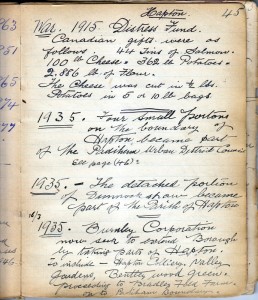 Hapton
45
War. 1915 Distress Fund.
Canadian gifts were as
follows. 44 Tins of Salmon.
100 lb Cheese. 362 lb Potatoes.
2,886 lb of Flour.
The Cheese was cut in ½ lbs.
Potatoes in 5 or 10 lb bags
1935. Four small portions
on the boundary of
Hapton became part
of the Padiham Urban District Council
See page (46)
1935 - The detached portion
of Dunnockshaw became
part of the Parish of Hapton
1935. Burnley Corporation
now seek to extend Borough
by taking parts of Hapton.
To include - Hapton Colliery, Valley
Gardens, Bentley wood green.
proceeding to Bradley Fold Farm.
on to Padiham Boundary.
963
77